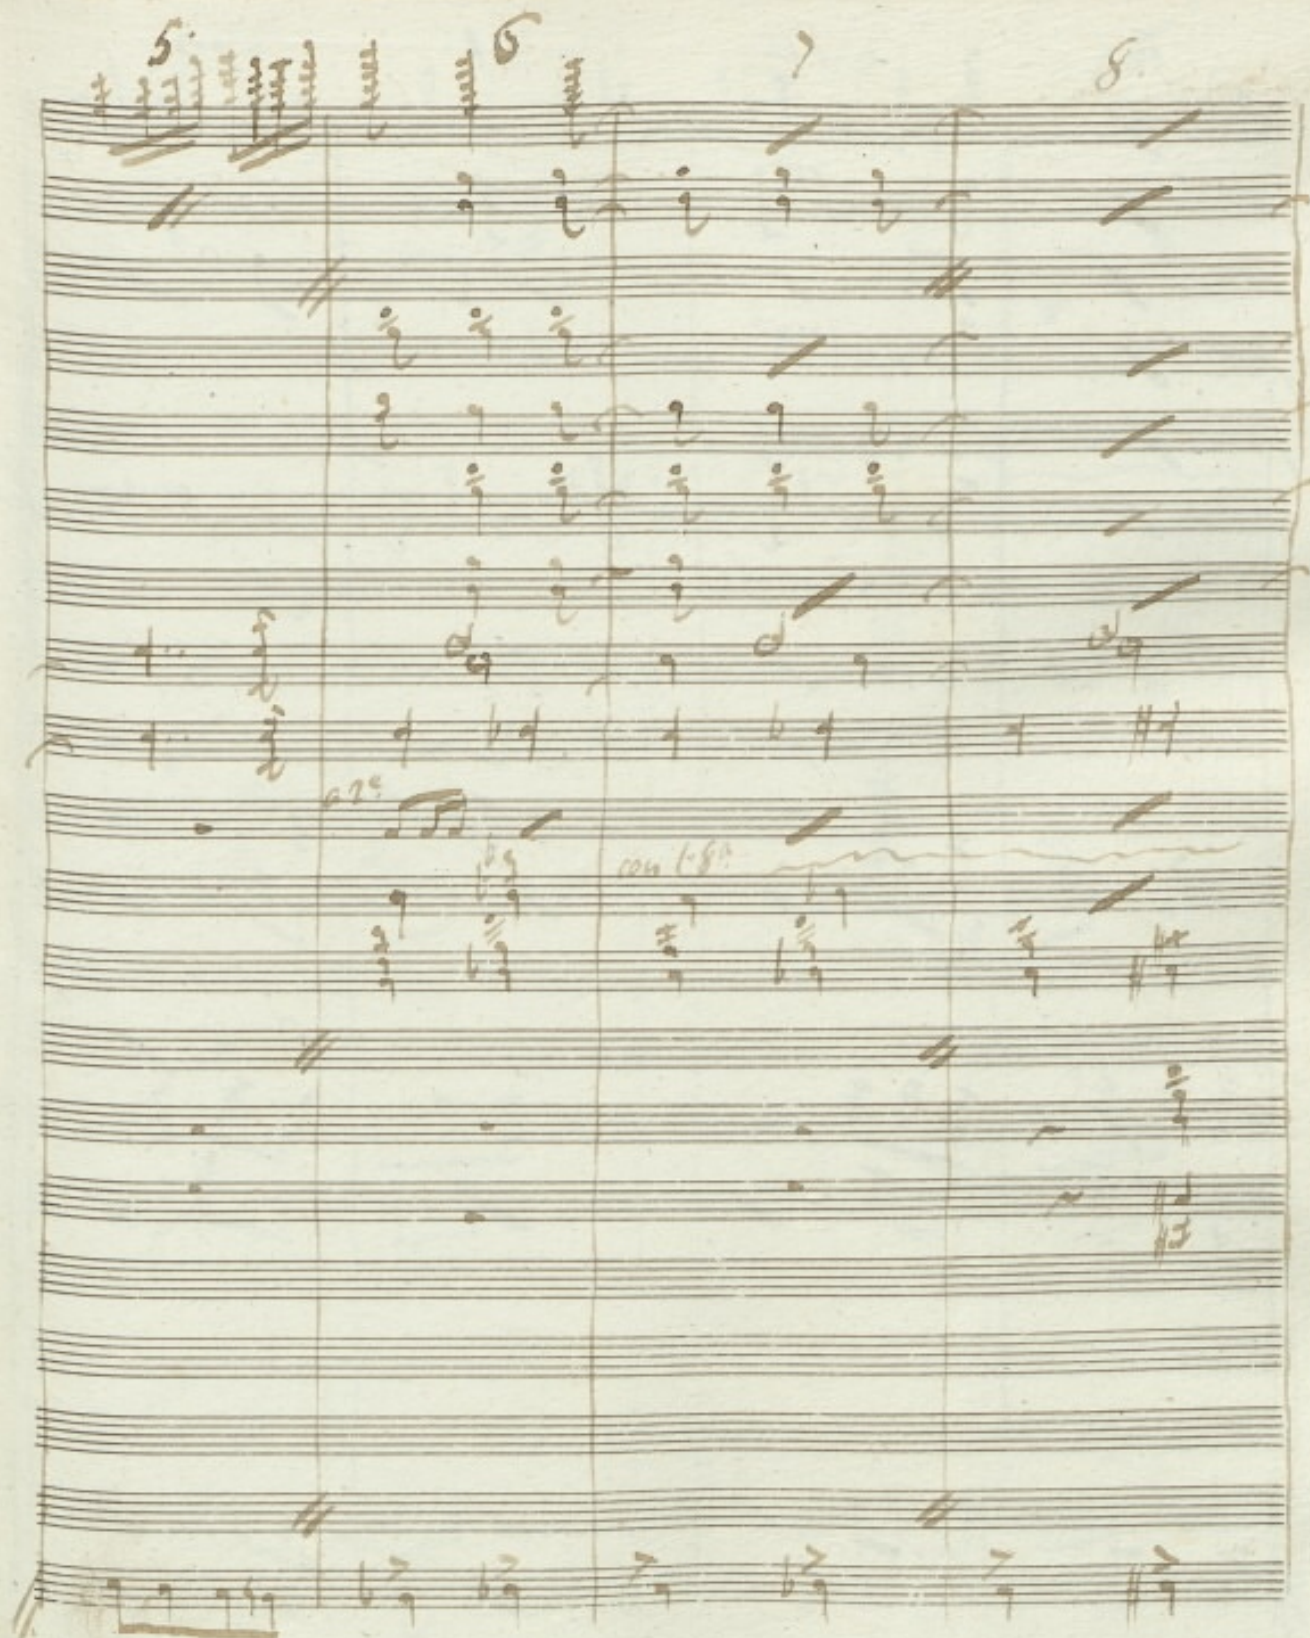 5. 6 7 8.
a 2e
con l 8a